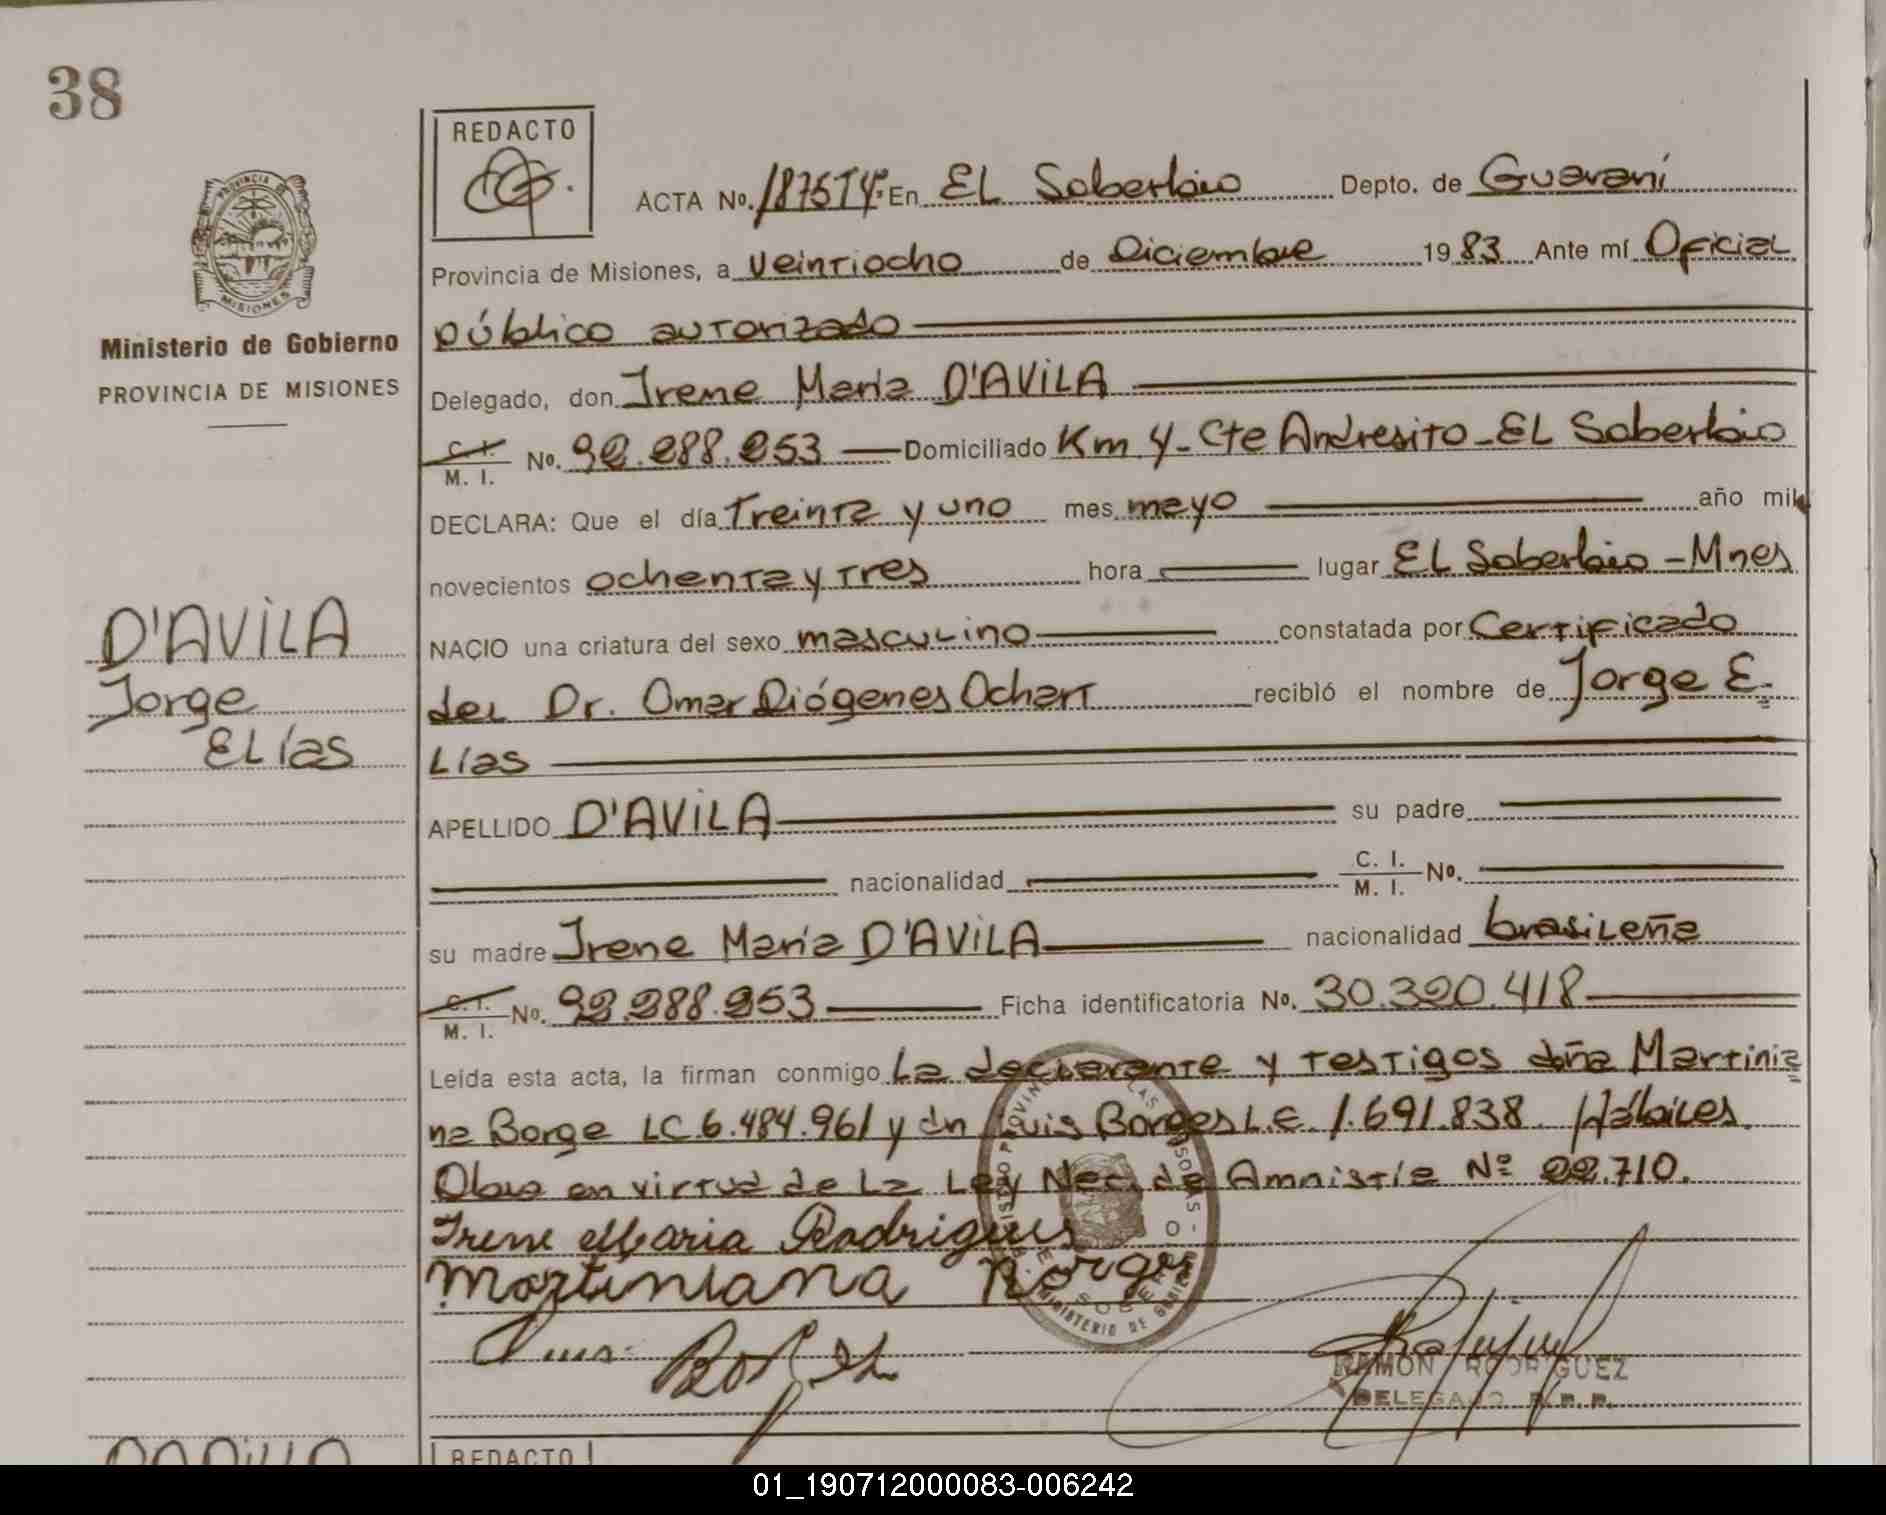 38
REDACTO
ACTA No. 1875T4º En EL Soberbio Depto. de Guaraní
Provincia de Misiones, a veintiocho de Diciembre 1983 Ante mí Oficial
público autorizado
Delegado, don Irene María D'AVILA
C. I. M. I. No. 92.288.253 Domiciliado Km 4 - Cte Andresito - EL Soberbio
DECLARA: Que el día Treinta y uno mes mayo año mil
novecientos ochenta y tres hora lugar EL Soberbio - Mnes
NACIO una criatura del sexo masculino constatada por Certificado
del Dr. Omar Diógenes Ochart recibió el nombre de Jorge E-
Lías
APELLIDO D'AVILA su padre
nacionalidad C. I. M. I. No.
su madre Irene María D'AVILA nacionalidad brasileña
C. I. M. I. No. 92.288.253 Ficha identificatoria No. 30.320.418
Leída esta acta, la firman conmigo La declarante y testigos doña Martinia=
na Borge LC 6.484.961 y dn Luis Borges L.E. 1.691.838. Hábiles.
Obro en virtud de La Ley Nac. de Amnistía Nº 22.710.
Irene Maria Rodrigues
Martiniana Borge
RAMON RODRIGUEZ
DELEGADO R.P.P.
PROVINCIA DE
MISIONES
Ministerio de Gobierno
PROVINCIA DE MISIONES
D'AVILA
Jorge
ELías
MINISTERIO DE GOBIERNO
REDACTO
01_190712000083-006242